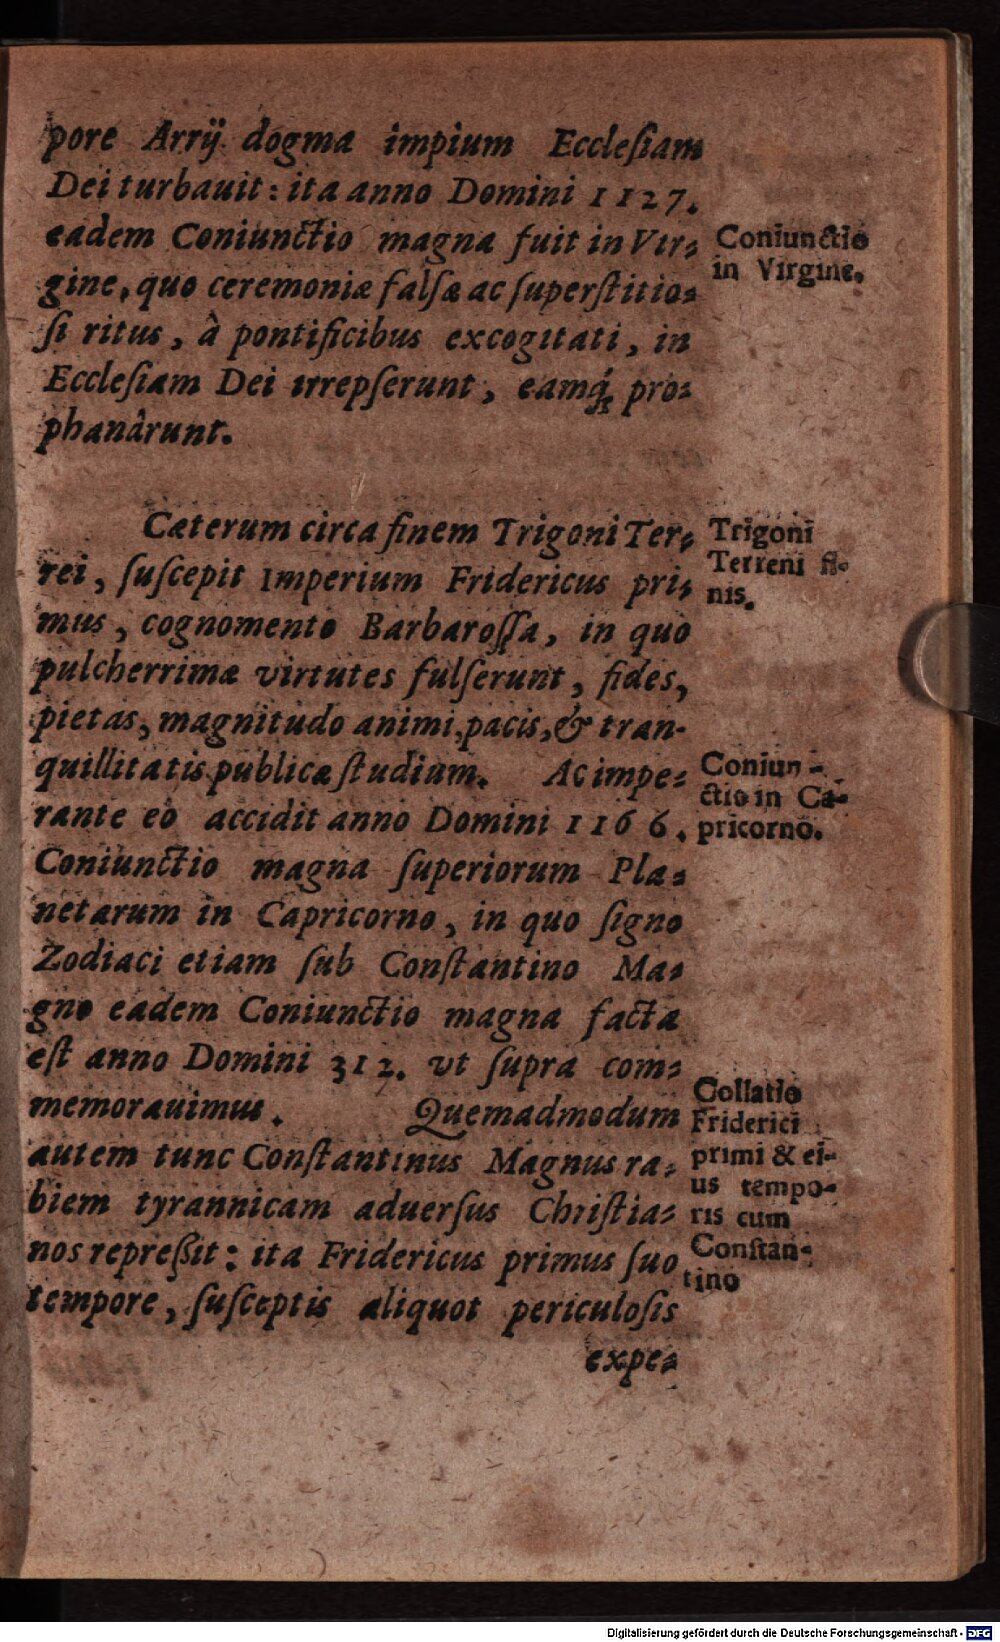 pore Arrij dogma impium Ecclesiam
Dei turbauit: ita anno Domini 1127.
eadem Coniunctio magna fuit in Vir-
gine, quo ceremoniæ falsæ ac superstitio-
si ritus, à pontificibus excogitati, in
Ecclesiam Dei irrepserunt, eamq́; pro-
phanârunt.
Coniunctio
in Virgine.
Cæterum circa finem Trigoni Ter-
rei, suscepit Imperium Fridericus pri-
mus, cognomento Barbarossa, in quo
pulcherrimæ virtutes fulserunt, fides,
pietas, magnitudo animi, pacis, & tran-
quillitatis publicæ studium. Ac impe-
rante eo accidit anno Domini 1166.
Coniunctio magna superiorum Pla-
netarum in Capricorno, in quo signo
Zodiaci etiam sub Constantino Ma-
gno eadem Coniunctio magna facta
est anno Domini 312. vt supra com-
memorauimus. Quemadmodum
autem tunc Constantinus Magnus ra-
biem tyrannicam aduersus Christia-
nos repreßit: ita Fridericus primus suo
tempore, susceptis aliquot periculosis
expe-
Trigoni
Terreni fi-
nis.
Coniun-
ctio in Ca-
pricorno.
Collatio
Friderici
primi & ei-
us tempo-
ris cum
Constan-
tino
Digitalisierung gefördert durch die Deutsche Forschungsgemeinschaft - DFG